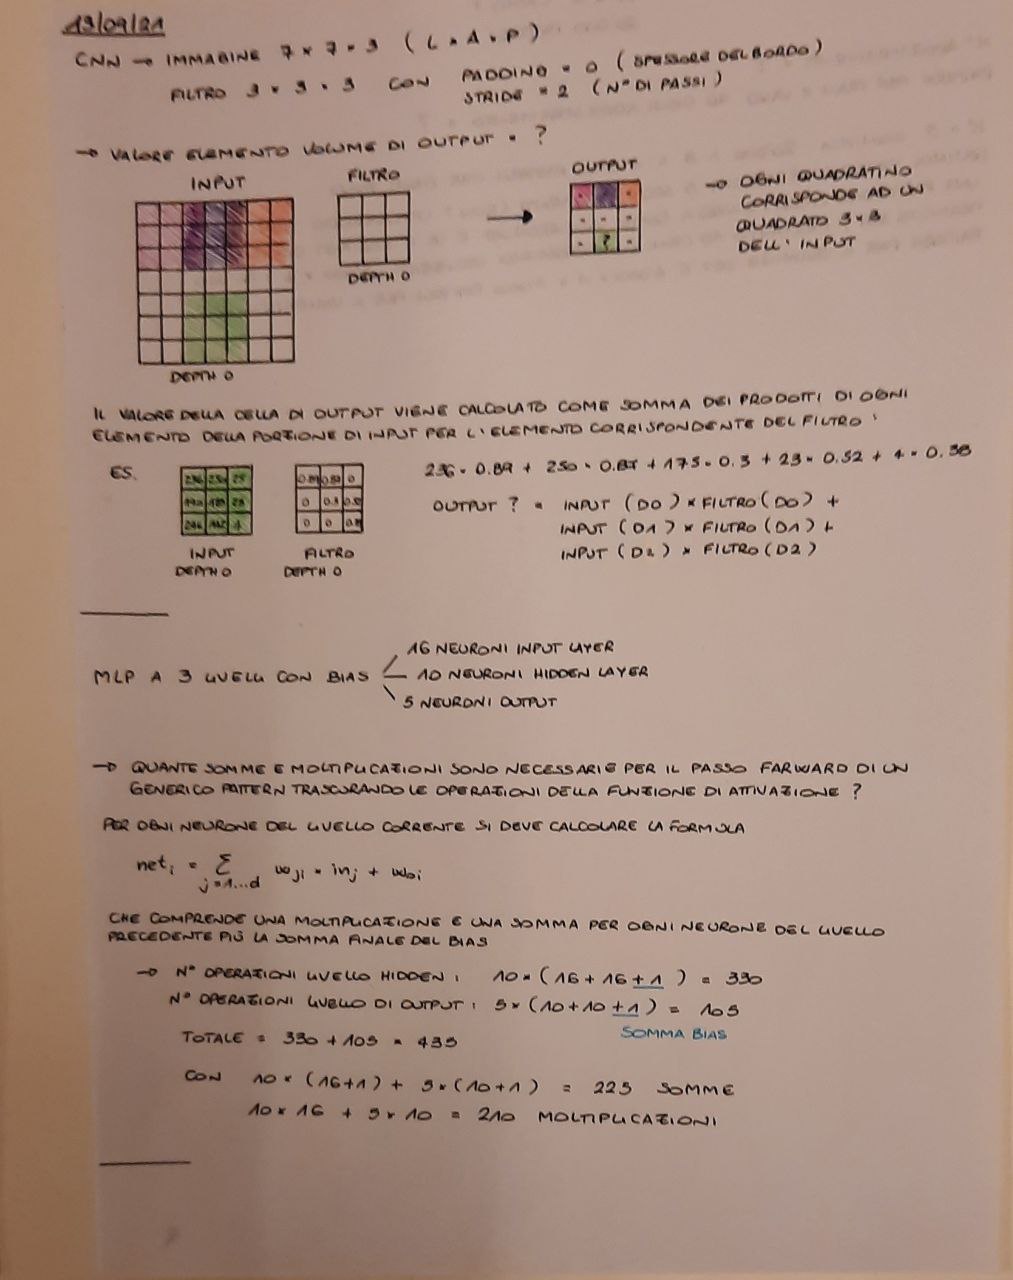 13/09/21
CNN → IMMAGINE 7 × 7 × 3 ( L × A × P )
FILTRO 3 × 3 × 3 CON PADDING = 0 ( SPESSORE DEL BORDO )
STRIDE = 2 ( N° DI PASSI )
→ VALORE ELEMENTO VOLUME DI OUTPUT = ?
INPUT FILTRO OUTPUT
→ OGNI QUADRATINO
CORRISPONDE AD UN
QUADRATO 3×3
DELL' INPUT
?
DEPTH 0
DEPTH 0
IL VALORE DELLA CELLA DI OUTPUT VIENE CALCOLATO COME SOMMA DEI PRODOTTI DI OGNI
ELEMENTO DELLA PORZIONE DI INPUT PER L'ELEMENTO CORRISPONDENTE DEL FILTRO
ES.
0 0.3
0 0
INPUT
DEPTH 0
FILTRO
DEPTH 0
236 × 0.89 + 250 × + 175 × 0.3 + 23 × 0.52 + 4 × 0.38
OUTPUT ? = INPUT (D0) × FILTRO (D0) +
INPUT (D1) × FILTRO (D1) +
INPUT (D2) × FILTRO (D2)
MLP A 3 LIVELLI CON BIAS
16 NEURONI INPUT LAYER
10 NEURONI HIDDEN LAYER
5 NEURONI OUTPUT
→ QUANTE SOMME E MOLTIPLICAZIONI SONO NECESSARIE PER IL PASSO FARWARD DI UN
GENERICO PATTERN TRASCURANDO LE OPERAZIONI DELLA FUNZIONE DI ATTIVAZIONE ?
PER OGNI NEURONE DEL LIVELLO CORRENTE SI DEVE CALCOLARE LA FORMULA
net_i = Σ_{j=1...d} w_{ji} × in_j + w_{0i}
CHE COMPRENDE UNA MOLTIPLICAZIONE E UNA SOMMA PER OGNI NEURONE DEL LIVELLO
PRECEDENTE PIÙ LA SOMMA FINALE DEL BIAS
→ N° OPERAZIONI LIVELLO HIDDEN : 10 × (16 + 16 + 1 ) = 330
N° OPERAZIONI LIVELLO DI OUTPUT : 5 × (10 + 10 + 1 ) = 105
SOMMA BIAS
TOTALE = 330 + 105 = 435
CON 10 × (16+1) + 5 × (10+1) = 225 SOMME
10 × 16 + 5 × 10 = 210 MOLTIPLICAZIONI